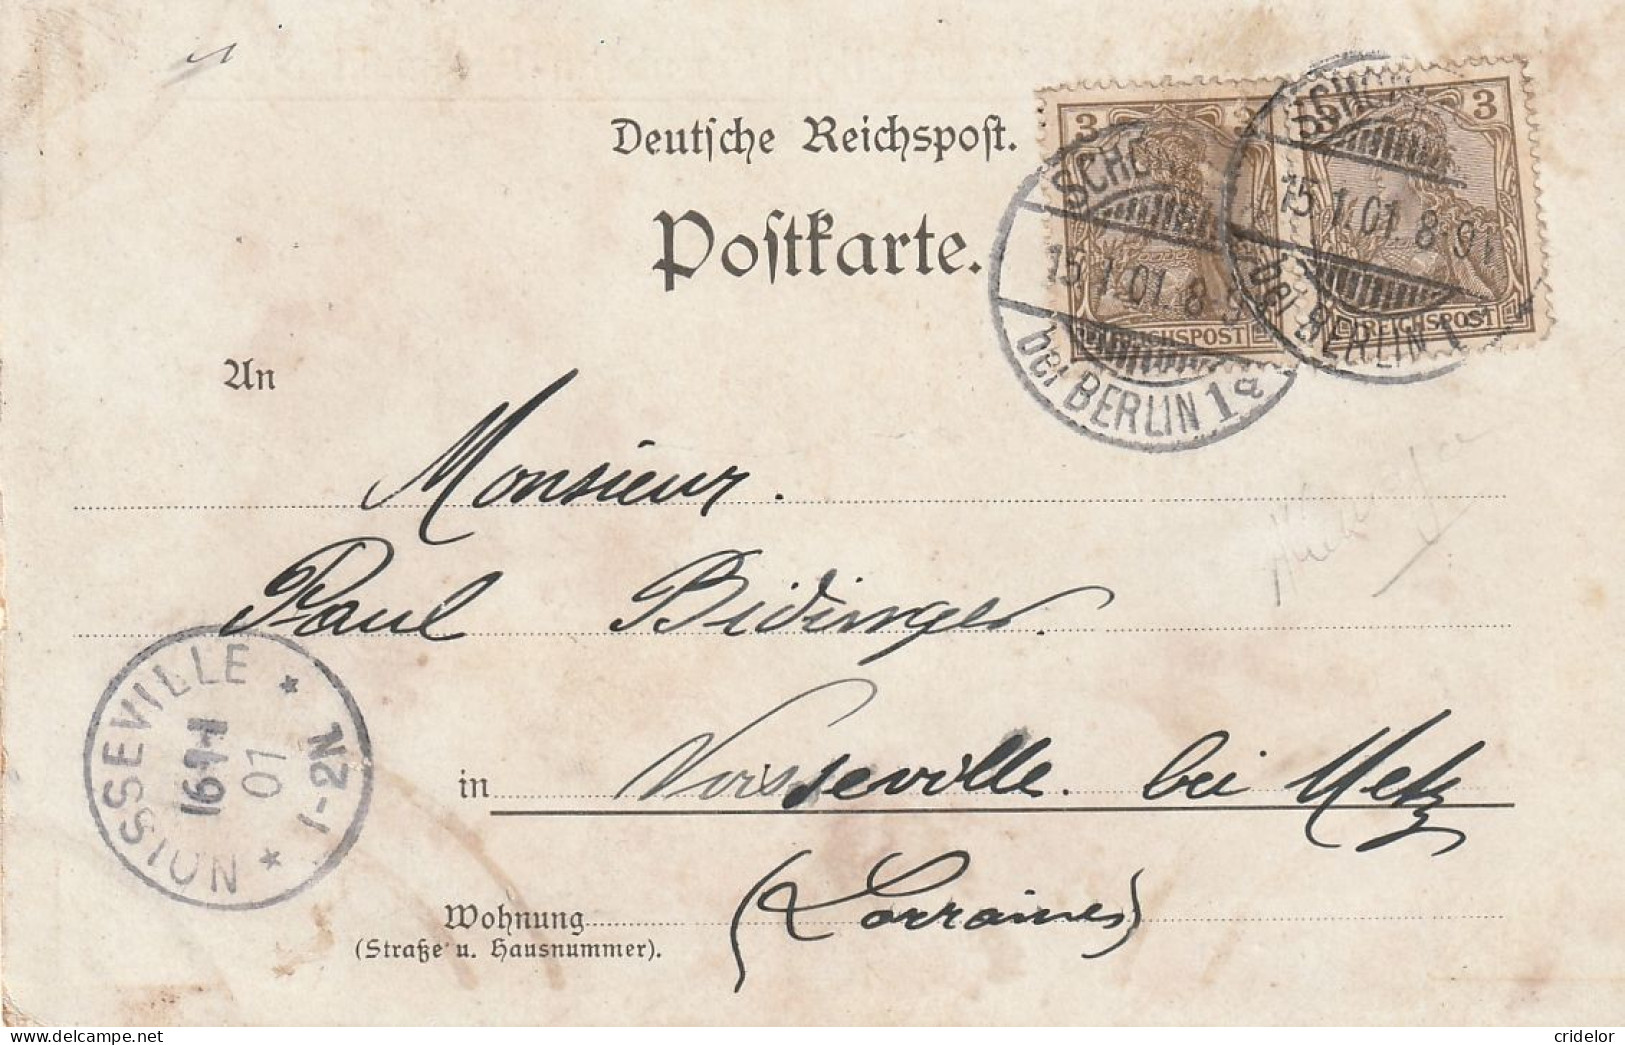 Deutsche Reichspost.
Postkarte.
3 3
3
SCHÖ
15.1.01. 8-9
bei BERLIN 1a
REICHSPOST
SCHÖ
15.1.01. 8-9V
bei BERLIN 1
REICHSPOST
An
Monsieur.
Paul Bidinger.
in Noisseville. bei Metz
(Lorraine)
Wohnung
(Straße u. Hausnummer).
NOISSEVILLE
16 1
01
1-2N
cridelor
www.delcampe.net